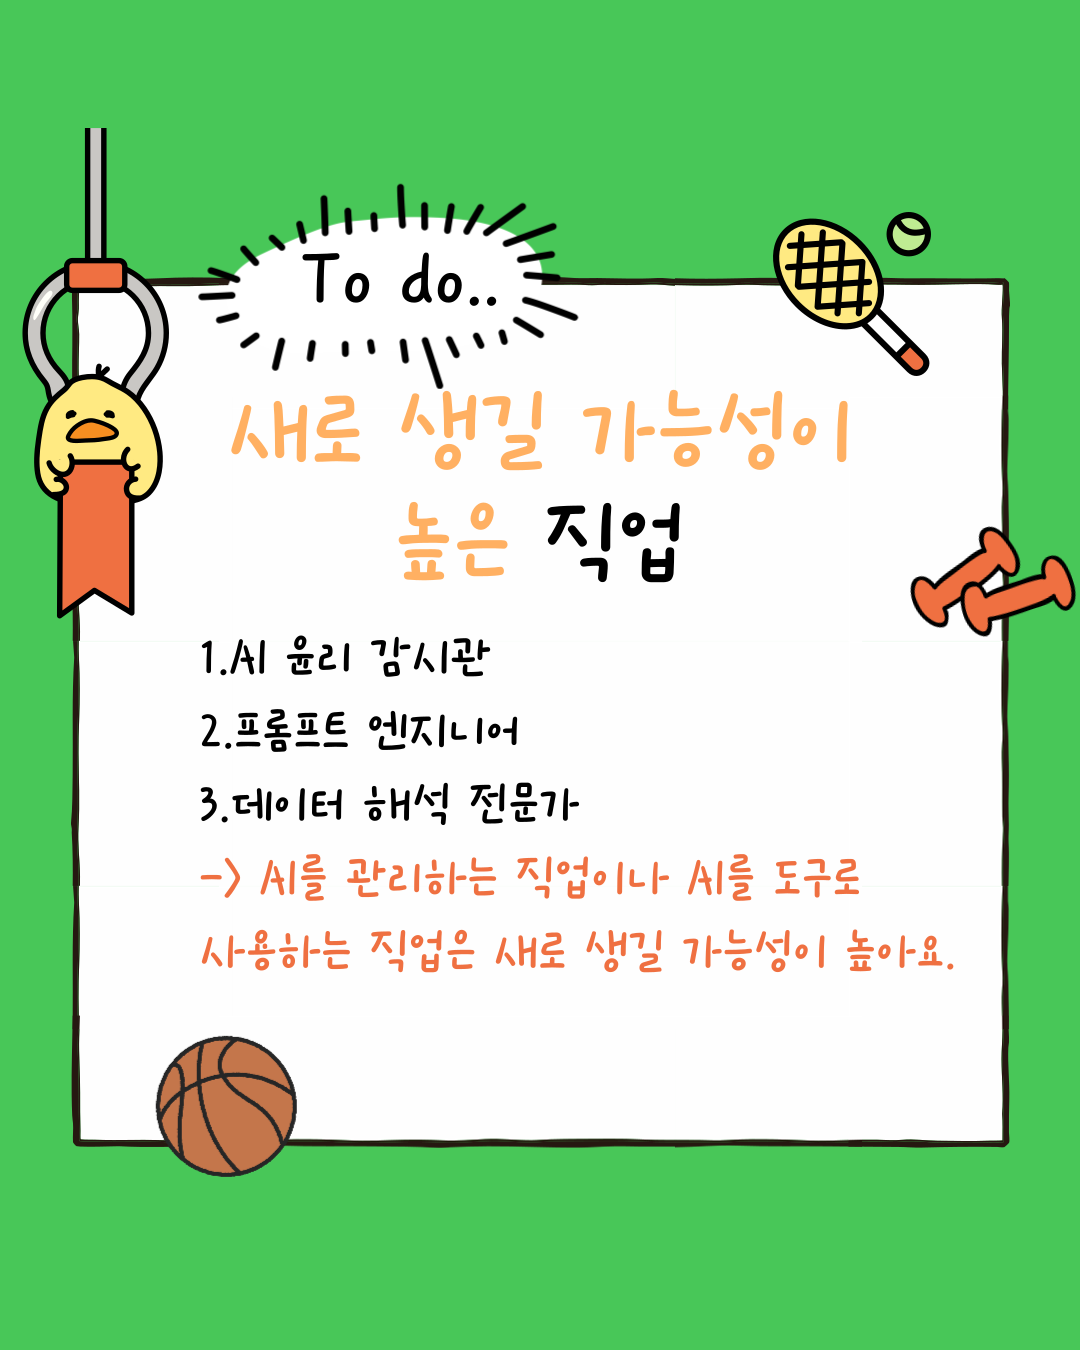 To do..
새로 생길 가능성이
높은 직업
1.AI 윤리 감시관
2.프롬프트 엔지니어
3.데이터 해석 전문가
-> AI를 관리하는 직업이나 AI를 도구로
사용하는 직업은 새로 생길 가능성이 높아요.